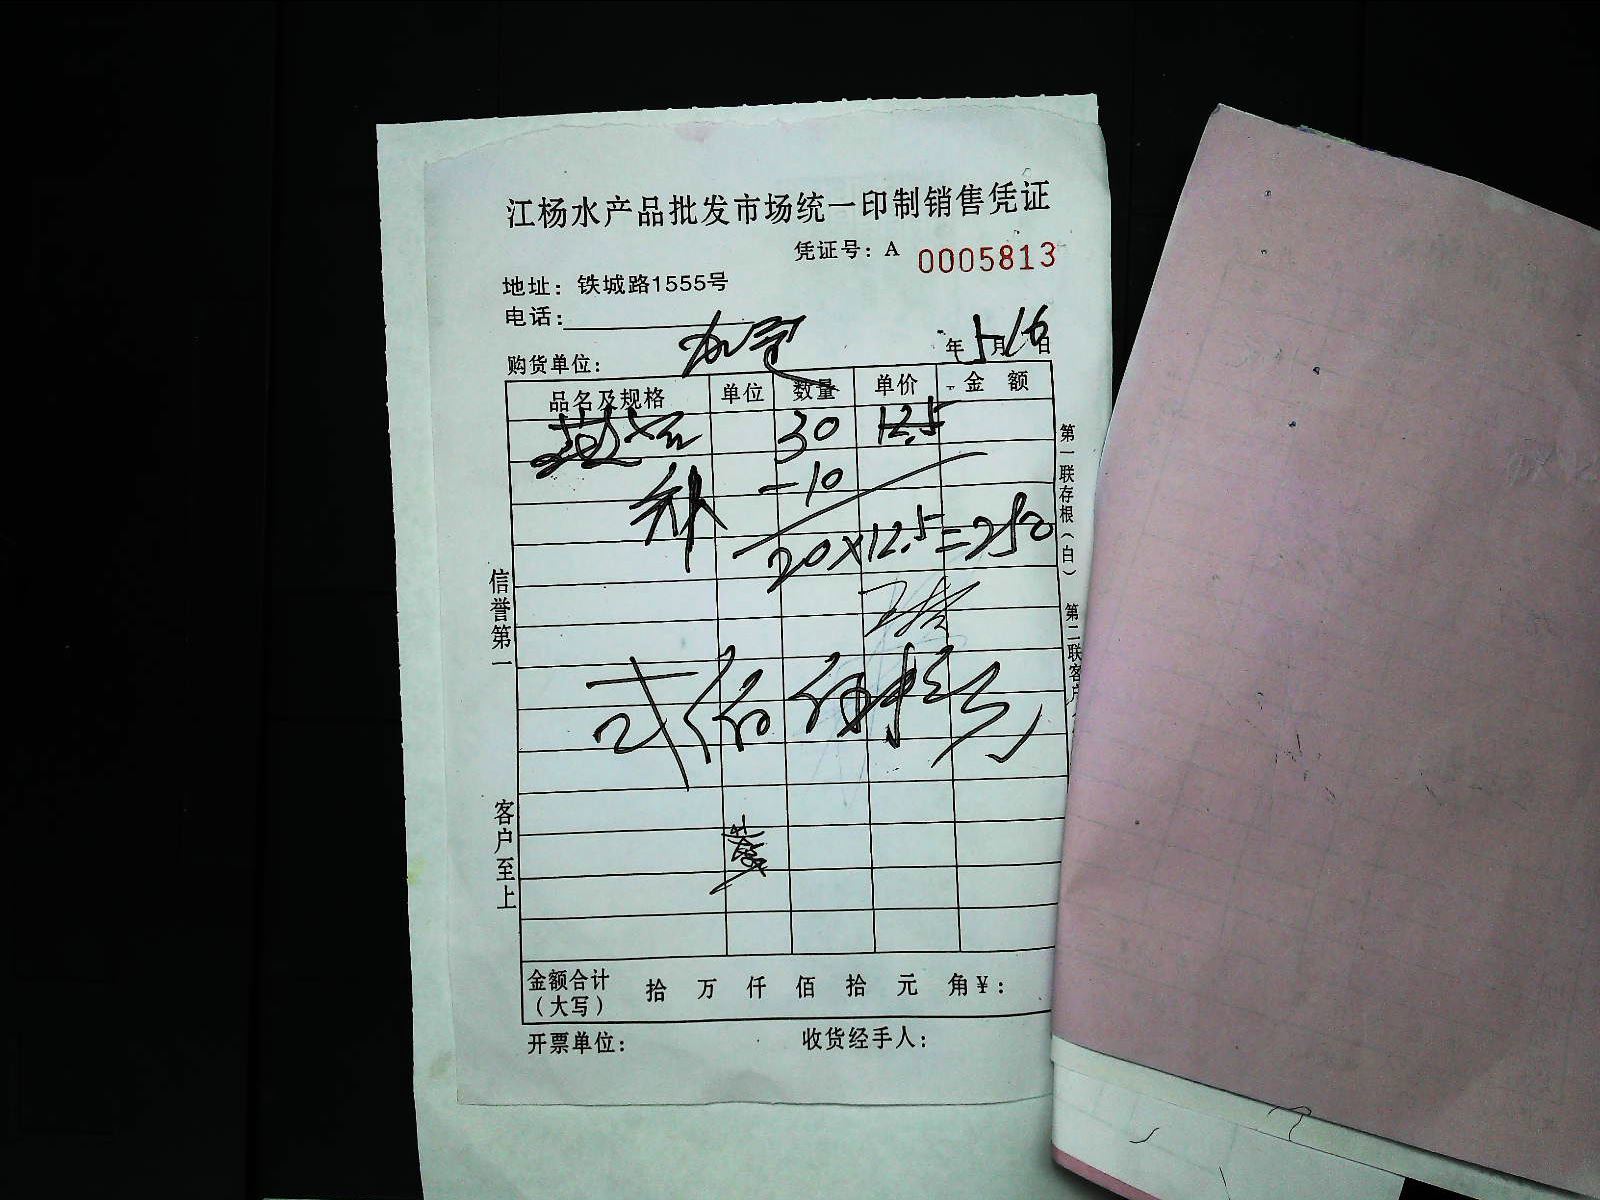 江杨水产品批发市场统一印制销售凭证
凭证号：A 0005813
地址：铁城路1555号
电话：
购货单位： 年 5月 16日
品名及规格 单位 数量 单价 金额
30 12.5
-10
20×12.5=250
弍佰伍拾元
信誉第一
客户至上
第一联存根（白）
第二联客户
金额合计（大写） 拾 万 仟 佰 拾 元 角￥：
开票单位： 收货经手人：